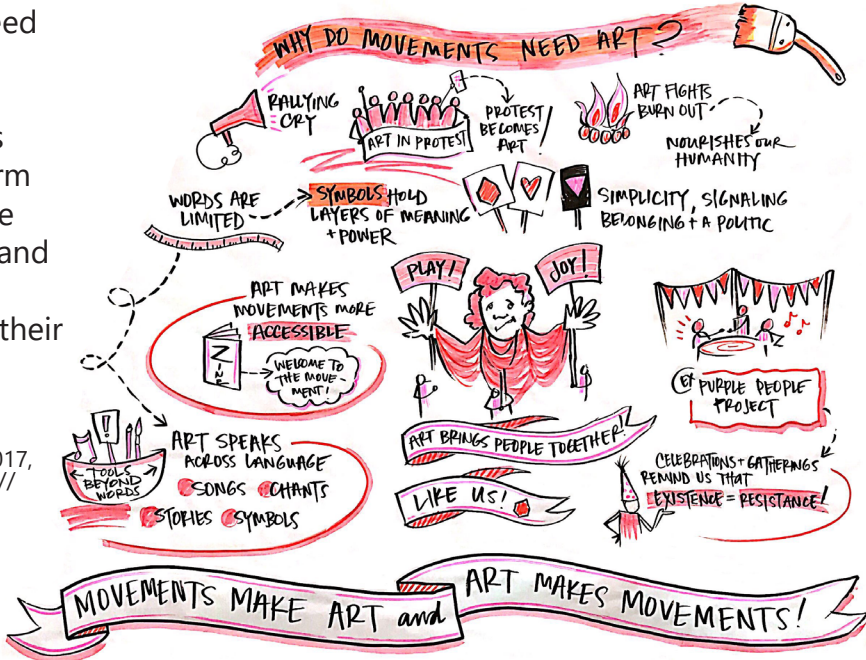 eed
s
rm
e
and
their
017,
//
WHY DO MOVEMENTS NEED ART?
RALLYING
CRY
ART IN PROTEST
PROTEST
BECOMES
ART!
ART FIGHTS
BURN OUT
NOURISHES OUR
HUMANITY
WORDS ARE
LIMITED
SYMBOLS HOLD
LAYERS OF MEANING
+ POWER
SIMPLICITY, SIGNALING
BELONGING + A POLITIC
ART MAKES
MOVEMENTS MORE
ACCESSIBLE
ZINE
WELCOME TO
THE MOVE-
MENT!
PLAY!
JOY!
EX
PURPLE PEOPLE
PROJECT
!
TOOLS
BEYOND
WORDS
ART SPEAKS
ACROSS LANGUAGE
SONGS CHANTS
STORIES SYMBOLS
ART BRINGS PEOPLE TOGETHER!
LIKE US!
CELEBRATIONS + GATHERINGS
REMIND US THAT
EXISTENCE = RESISTANCE!
MOVEMENTS MAKE ART and
ART MAKES MOVEMENTS!